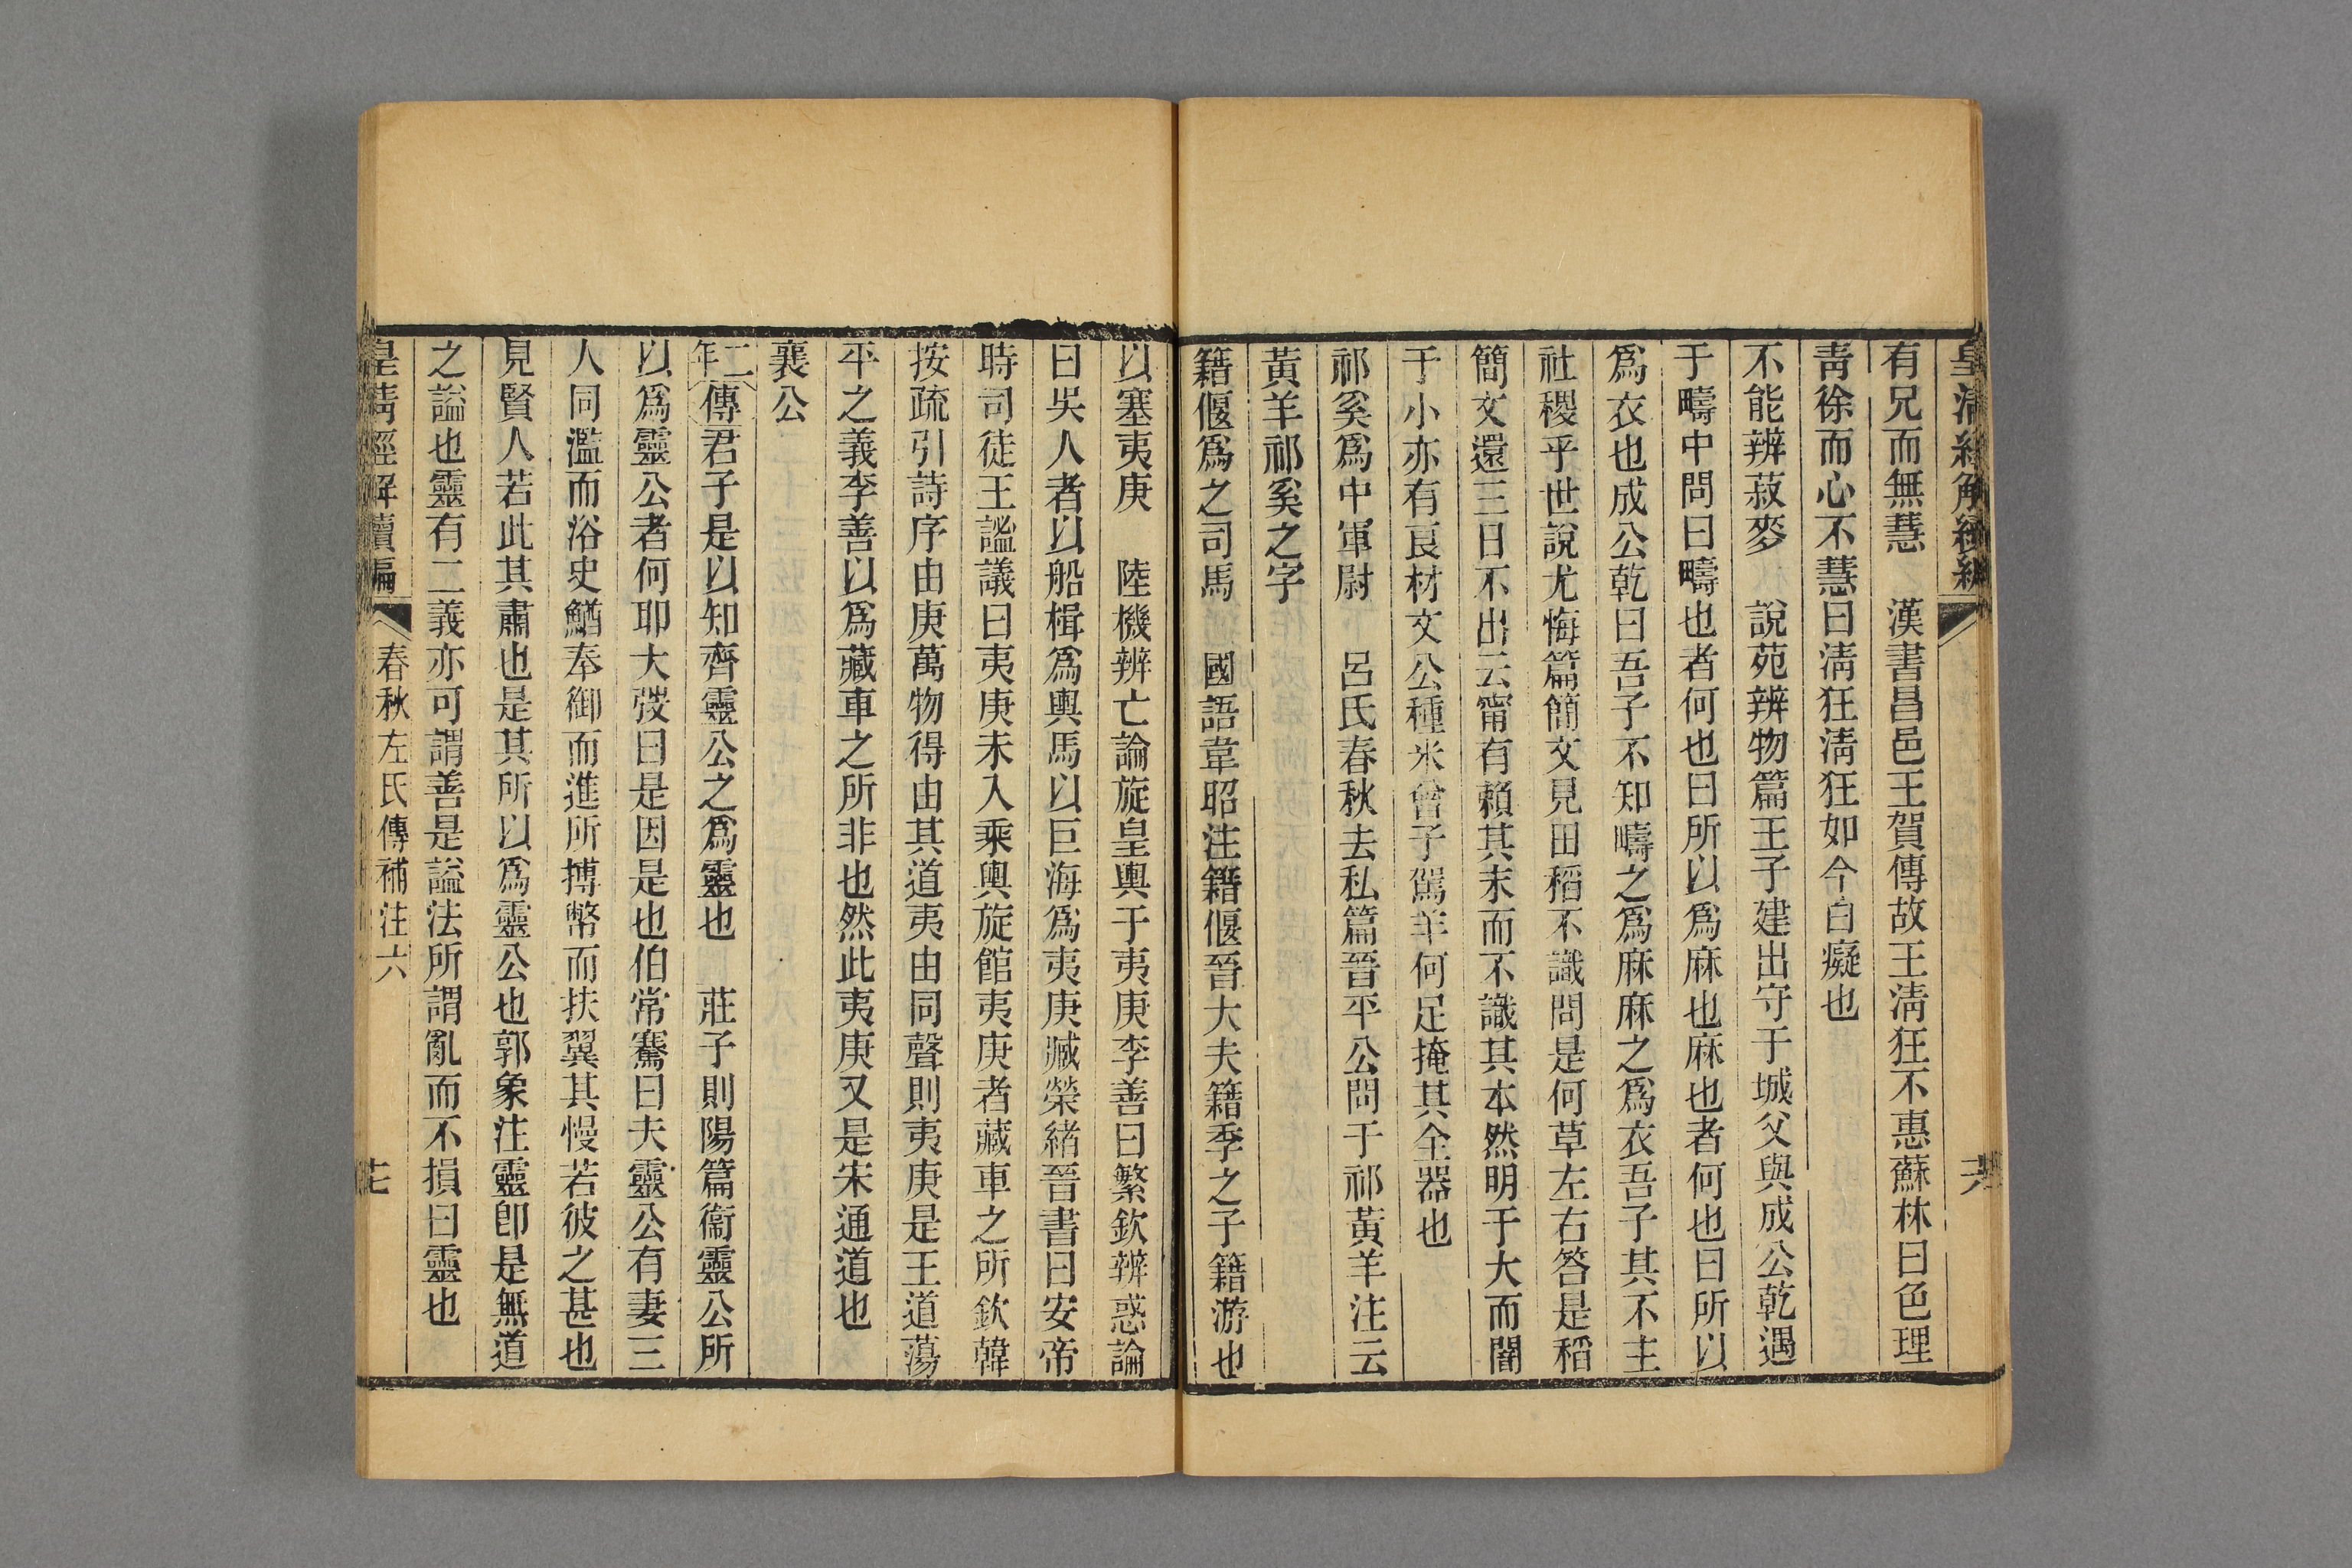 皇清經解續編
六
有兄而無慧　漢書昌邑王賀傳故王清狂不惠蘇林曰色理
靑徐而心不慧曰淸狂淸狂如今白癡也
不能辨菽麥　說苑辨物篇王子建出守于城父與成公乾遇
于疇中問曰疇也者何也曰所以爲麻也麻也者何也曰所以
爲衣也成公乾曰吾子不知疇之爲麻麻之爲衣吾子其不主
社稷乎世說尤悔篇簡文見田稻不識問是何草左右答是稻
簡文還三日不出云甯有賴其末而不識其本然明于大而闇
于小亦有良材文公種米曾子駕羊何足掩其全器也
祁奚爲中軍尉　呂氏春秋去私篇晉平公問于祁黃羊注云
黃羊祁奚之字
籍偃爲之司馬　國語韋昭注籍偃晉大夫籍季之子籍游也
以塞夷庚　陸機辨亡論旋皇輿于夷庚李善曰繁欽辨惑論
曰吳人者以船楫爲輿馬以巨海爲夷庚臧榮緒晉書曰安帝
時司徒王謐議曰夷庚未入乘輿旋館夷庚者藏車之所欽韓
按疏引詩序由庚萬物得由其道夷由同聲則夷庚是王道蕩
平之義李善以爲藏車之所非也然此夷庚又是宋通道也
襄公
二年傳君子是以知齊靈公之爲靈也　莊子則陽篇衞靈公所
以爲靈公者何耶大弢曰是因是也伯常騫曰夫靈公有妻三
人同濫而浴史鰌奉御而進所搏幣而扶翼其慢若彼之甚也
見賢人若此其肅也是其所以爲靈公也郭象注靈卽是無道
之謚也靈有二義亦可謂善是謚法所謂亂而不損曰靈也
皇淸經解續編
春秋左氏傳補注六
七